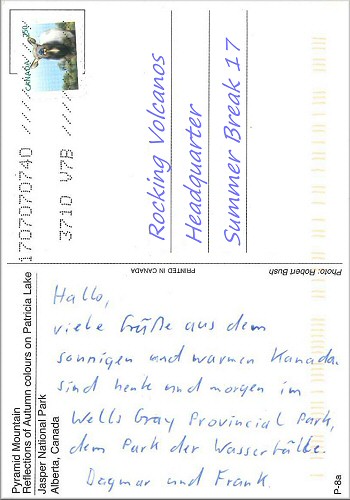 CANADA 250
1707070740
3710 V7B
Rocking Volcanos
Headquarter
Summer Break 17
PRINTED IN CANADA
Photo: Robert Bush
Pyramid Mountain
Reflections of Autumn colours on Patricia Lake
Jasper National Park
Alberta, Canada
P-8a
Hallo,
viele Grüße aus dem
sonnigen und warmen Kanada.
sind heute und morgen im
Wells Gray Provincial Park,
dem Park der Wasserfälle.
Dagmar und Frank.